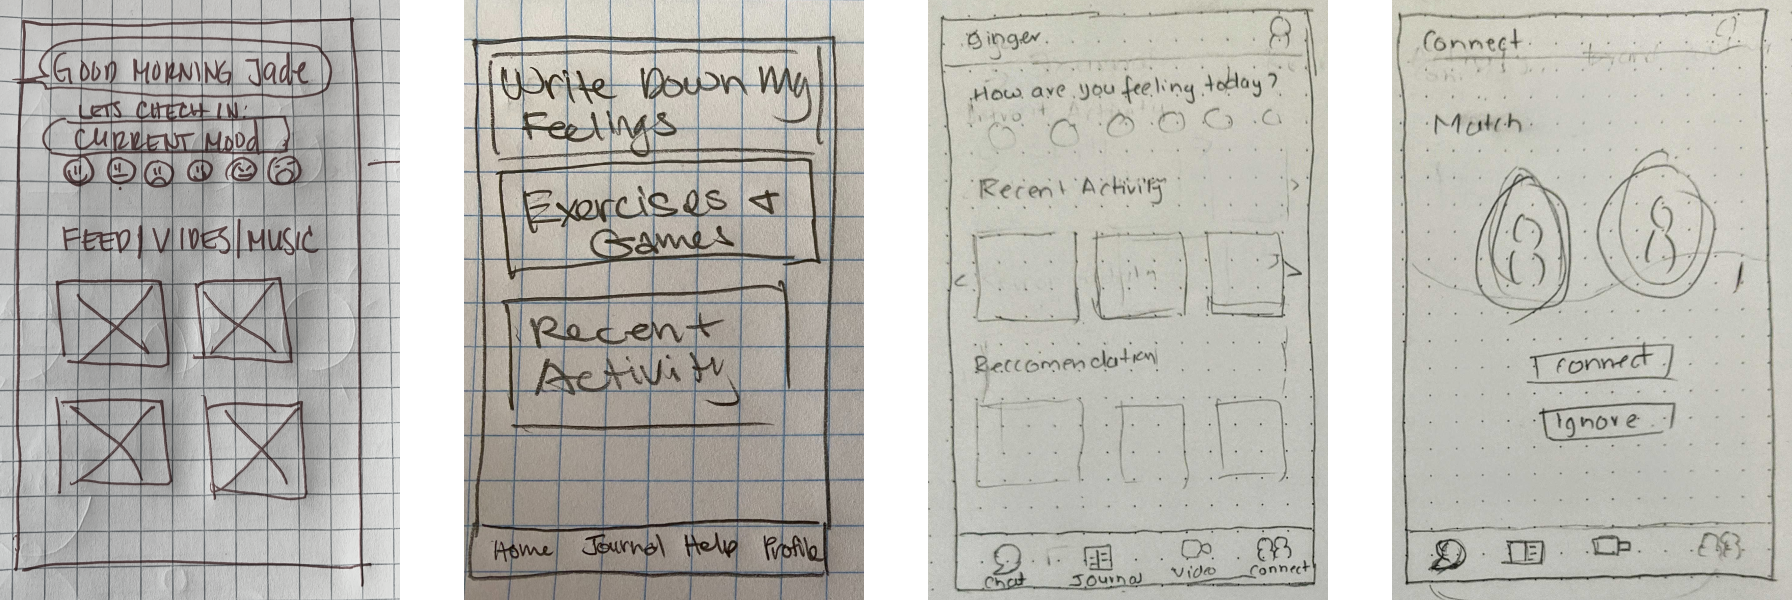 GOOD MORNING Jade
LETS CHECH IN:
CURRENT MOOD
FEED/VIDES/MUSIC
Write Down My
Feelings
Exercises &
Games
Recent
Activity
Home Journal Help Profile
ginger
How are you feeling today?
Recent Activity
Reccomendation
Chat Journal Video Connect
Connect
Match
connect
ignore